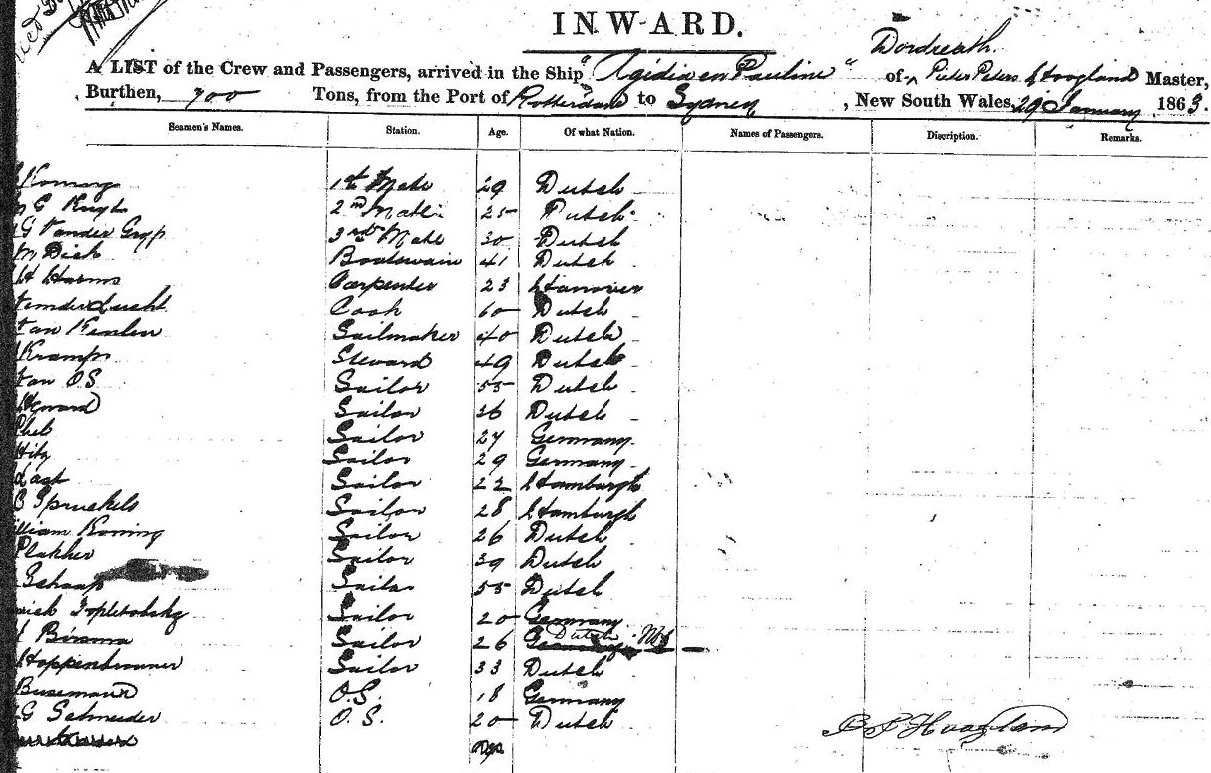 INWARD.
Dordreath.
A LIST of the Crew and Passengers, arrived in the Ship "Agidia en Pauline" of Pieter Peters Hoogland Master,
Burthen, 900 Tons, from the Port of Rotterdam to Sydney, New South Wales, 29 January 1863.
Seamen's Names. Station. Age. Of what Nation. Names of Passengers. Discription. Remarks.
Koning 1st Mate 29 Dutch
2nd Mate 25 Dutch
G Vander Gryp 3rd Mate 30 Dutch
M Dick Boatswain 41 Dutch
H Harms Carpenter 23 Hanover
Cook 60 Dutch
Sailmaker 40 Dutch
Kramp Steward 49 Dutch
Van O.S. Sailor 55 Dutch
Sailor 36 Dutch
Sailor 27 Germany
Sailor 29 Germany
Last Sailor 22 Hamburgh
Spruekels Sailor 28 Hamburgh
lliam Koning Sailor 26 Dutch
Plakker Sailor 39 Dutch
Schaap Sailor 55 Dutch
Sailor 20 Germany
Sailor 26 Dutch
Hoppenbrouwer Sailor 33 Dutch
Busemann O.S. 18 Germany
G Schneider O.S. 20 Dutch
P P Hoogland